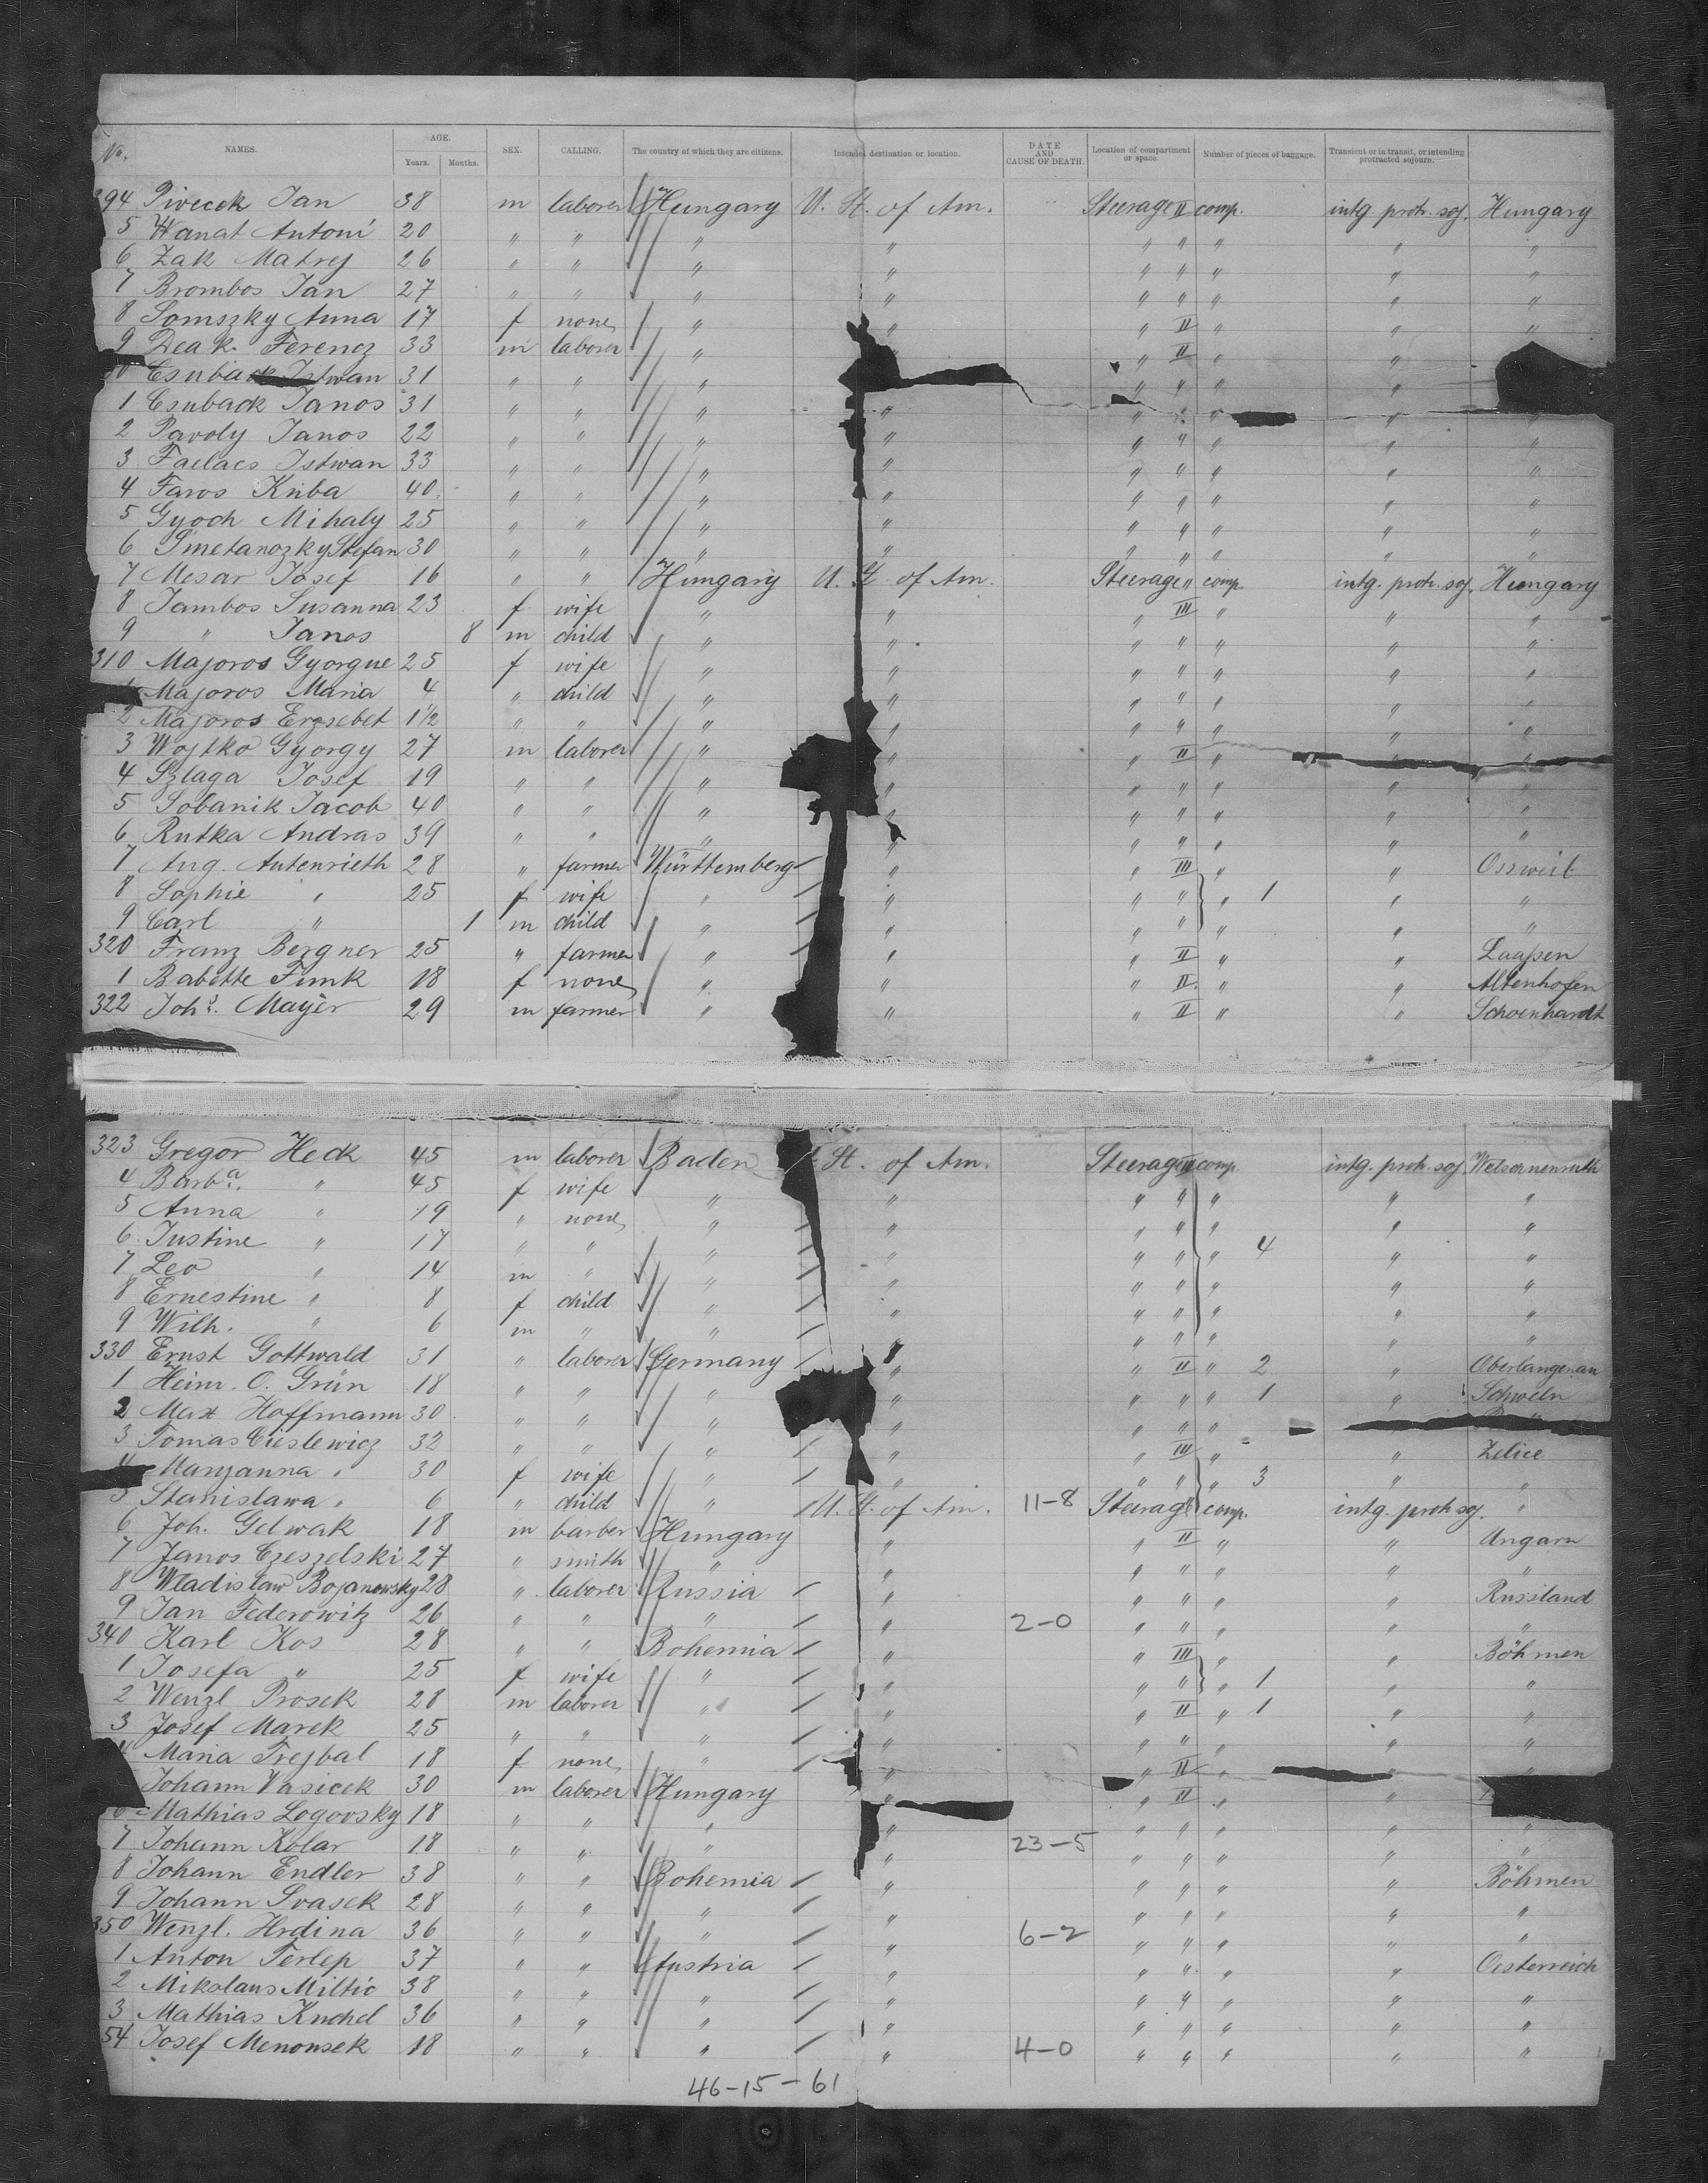 No. NAMES. AGE. Years. Months. SEX. CALLING. The country of which they are citizens. Intended destination or location. DATE AND CAUSE OF DEATH. Location of compartment or space. Number of pieces of baggage. Transient or in transit, or intending protracted sojourn.
94 Pivecek Jan 38 m laborer Hungary U. St. of Am. Steerage II comp. intg. protr. soj. Hungary
5 Wanat Antoni 20 " " " " " " " " "
6 Zak Matrej 26 " " " " " " " " "
7 Brombos Jan 27 " " " " " " " " "
8 Somszky Anna 17 f none " " " II " " "
9 Deak Ferencz 33 m laborer " " " II " "
Csuback Istwan 31 " " " " " " "
1 Csuback Janos 31 " " " " " " " "
2 Pavoly Janos 22 " " " " " " " " "
3 Faelacs Istwan 33 " " " " " " " " "
4 Faros Kuba 40 " " " " " " " " "
5 Gyoch Mihaly 25 " " " " " " " " "
6 Smetanozky Stefan 30 " " " " " " " " "
7 Mesar Josef 16 " " Hungary U. St. of Am. Steerage " comp. intg. protr. soj. Hungary
8 Jambos Susanna 23 f wife " " " III " " "
9 " Janos 8 m child " " " " " " "
310 Majoros Gyorgne 25 f wife " " " " " " "
Majoros Maria 4 " child " " " " " " "
2 Majoros Erzsebet 1 1/2 " " " " " " " " "
3 Wojtko Gyorgy 27 m laborer " " " II " " "
4 Szlaga Josef 19 " " " " " " " " "
5 Sobanik Jacob 40 " " " " " " " " "
6 Rutka Andras 39 " " " " " " " " "
7 Aug. Autenrieth 28 " farmer Württemberg " " III " " Ossweil
8 Sophie " 25 f wife " " " " " 1 " "
9 Carl " 1 m child " " " " " " "
320 Franz Bergner 25 " farmer " " " II " " Laassen
1 Babette Funk 18 f none " " " II " " Altenhofen
322 Johs. Mayer 29 m farmer " " " II " " Schoenhardt
323 Gregor Heck 45 m laborer Baden St. of Am. Steerage III comp. intg. protr. soj. Wetschenreuth
4 Barba. " 45 f wife " " " " " " "
5 Anna " 19 " none " " " " " " "
6 Justine " 17 " " " " " " 4 " "
7 Leo " 14 m " " " " " " " "
8 Ernestine " 8 f child " " " " " " "
9 Wilh. " 6 m " " " " " " " "
330 Ernst Gottwald 31 " laborer Germany " " II " 2 " Oberlangenau
1 Heinr. O. Grün 18 " " " " " " " 1 " Schweln
2 Max Hoffmann 30 " " " " " " "
3 Tomas Cieslewicz 32 " " " " " III " " Zelice
Maryanna " 30 f wife " " " " " 3 " "
5 Stanislawa " 6 " child " U. St. of Am. 11-8 Steerage " comp. intg. protr. soj. "
6 Joh. Gelwak 18 m barber Hungary " " II " " Ungarn
7 Janos Czeszelski 27 " smith " " " " " " "
8 Wladislaw Bojanowsky 28 " laborer Russia " " " " " Russland
9 Jan Federowitz 26 " " " " 2-0 " " " " "
340 Karl Kos 28 " " Bohemia " " III " " Böhmen
1 Josefa " 25 f wife " " " " " 1 " "
2 Wenzl Prosek 28 m laborer " " " II " 1 " "
3 Josef Marek 25 " " " " " " " " "
Maria Trejbal 18 f none " " " II " " "
Johann Vasicek 30 m laborer Hungary " " II " "
6 Mathias Logovsky 18 " " " " " " " " "
7 Johann Kolar 18 " " " " 23-5 " " " " "
8 Johann Endler 38 " " Bohemia " " " " " Böhmen
9 Johann Svasek 28 " " " " " " " " "
350 Wenzl. Hrdina 36 " " " " 6-2 " " " " "
1 Anton Terlep 37 " " Austria " " " " " Oesterreich
2 Mikolaus Miltic 38 " " " " " " " " "
3 Mathias Knchel 36 " " " " " " " " "
54 Josef Menousek 18 " " " " 4-0 " " " " "
46-15-61